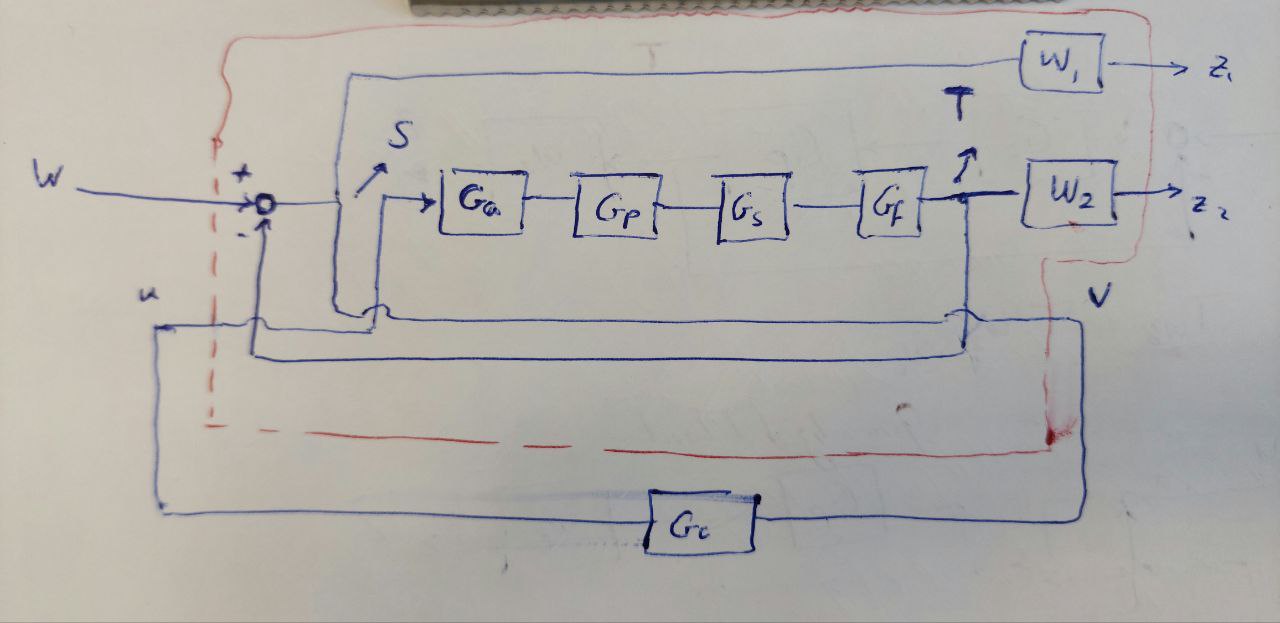 W₁ z₁
T
S
W + Gₐ Gₚ Gₛ G_f W₂ z₂
-
u v
G_c